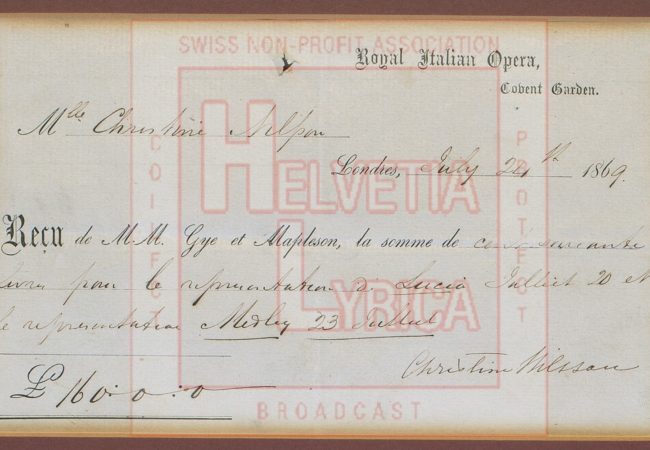 SWISS NON-PROFIT ASSOCIATION
Royal Italian Opera,
Covent Garden.
Mlle Christine Nilsson
Londres, July 24th 1869.
HELVETIA
LYRICA
Reçu de M.M. Gye et Mapleson, la somme de cent soixante
livres pour la représentation de Lucia Juillet 20 et
la représentation Medley 23 Juillet
Christine Nilsson
£160:0:0
BROADCAST